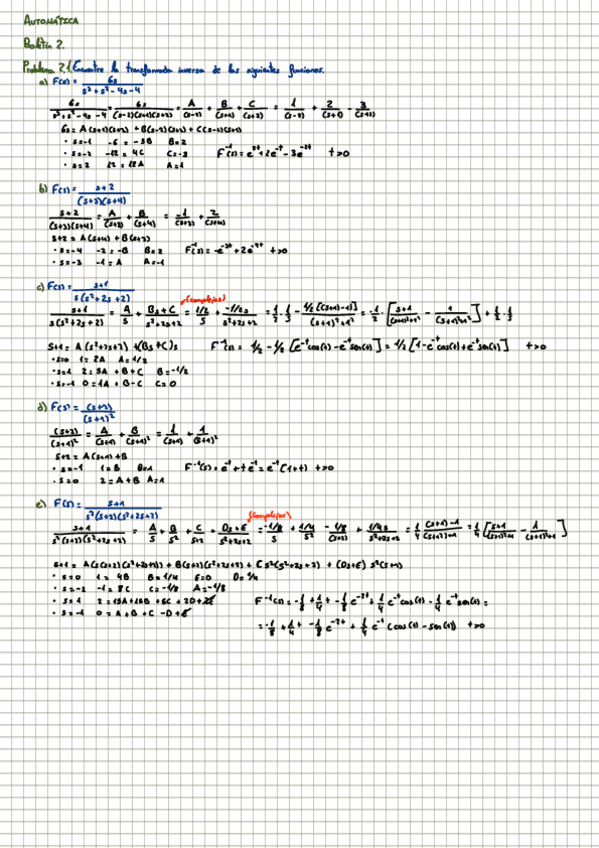 AUTOMÁTICA
Boletín 2.
Problema 2.1. Encuentre la transformada inversa de las siguientes funciones.
a) F(s) = 6s / (s³+s²-4s-4)
6s / (s³+s²-4s-4) = 6s / ((s-2)(s+1)(s+2)) = A/(s-2) + B/(s+1) + C/(s+2) = 1/(s-2) + 2/(s+1) - 3/(s+2)
6s = A(s+1)(s+2) + B(s-2)(s+2) + C(s-2)(s+1)
• s=-1 -6 = -3B B=2
• s=-2 -12 = 4C C=-3 F⁻¹(s) = e²ᵗ+2e⁻ᵗ-3e⁻²ᵗ t>0
• s=2 12 = 12A A=1
b) F(s) = (s+2) / ((s+3)(s+4))
(s+2) / ((s+3)(s+4)) = A/(s+3) + B/(s+4) = -1/(s+3) + 2/(s+4)
s+2 = A(s+4) + B(s+3)
• s=-4 -2 = -B B=2 F⁻¹(s) = -e⁻³ᵗ+2e⁻⁴ᵗ t>0
• s=-3 -1 = A A=-1
c) F(s) = (s+1) / (s(s²+2s+2))
(complejos)
(s+1) / (s(s²+2s+2)) = A/s + (Bs+C)/(s²+2s+2) = (1/2)/s + (-1/2s)/(s²+2s+2) = 1/2 · 1/s - 1/2[(s+1)-1]/((s+1)²+1²) = -1/2 · [(s+1)/((s+1)²+1²) - 1/((s+1)²+1²)] + 1/2 · 1/s
s+1 = A(s²+2s+2) + (Bs+C)s F⁻¹(s) = 1/2 - 1/2 [e⁻ᵗcos(t) - e⁻ᵗsen(t)] = 1/2 [1-e⁻ᵗcos(t)+e⁻ᵗsen(t)] t>0
• s=0 1 = 2A A=1/2
• s=1 2 = 5A + B + C B=-1/2
• s=-1 0 = 1A + B - C C=0
d) F(s) = (s+2) / (s+1)²
(s+2) / (s+1)² = A/(s+1) + B/(s+1)² = 1/(s+1) + 1/(s+1)²
s+2 = A(s+1) + B
• s=-1 1=B B=1 F⁻¹(s) = e⁻ᵗ+te⁻ᵗ = e⁻ᵗ(1+t) t>0
• s=0 2=A+B A=1
e) F(s) = (s+1) / (s²(s+2)(s²+2s+2))
(complejos)
(s+1) / (s²(s+2)(s²+2s+2)) = A/s + B/s² + C/(s+2) + (Ds+E)/(s²+2s+2) = (-1/8)/s + (1/4)/s² + (-1/8)/(s+2) + (1/4s)/(s²+2s+2) = 1/4 ((s+1)-1)/((s+1)²+1) = 1/4 [(s+1)/((s+1)²+1) - 1/((s+1)²+1)]
s+1 = As(s+2)(s²+2s+2) + B(s+2)(s²+2s+2) + Cs²(s²+2s+2) + (Ds+E)s²(s+2)
• s=0 1 = 4B B=1/4 E=0 D=1/4
• s=-2 -1 = 8C C=-1/8 A=-1/8
• s=1 2 = 15A+15B+5C+3D+3E F⁻¹(s) = -1/8 + 1/4 t - 1/8 e⁻²ᵗ + 1/4 e⁻ᵗcos(t) - 1/4 e⁻ᵗsen(t) =
• s=-1 0 = A+B+C-D+E = -1/8 + 1/4 t - 1/8 e⁻²ᵗ + 1/4 e⁻ᵗ (cos(t) - sen(t)) t>0